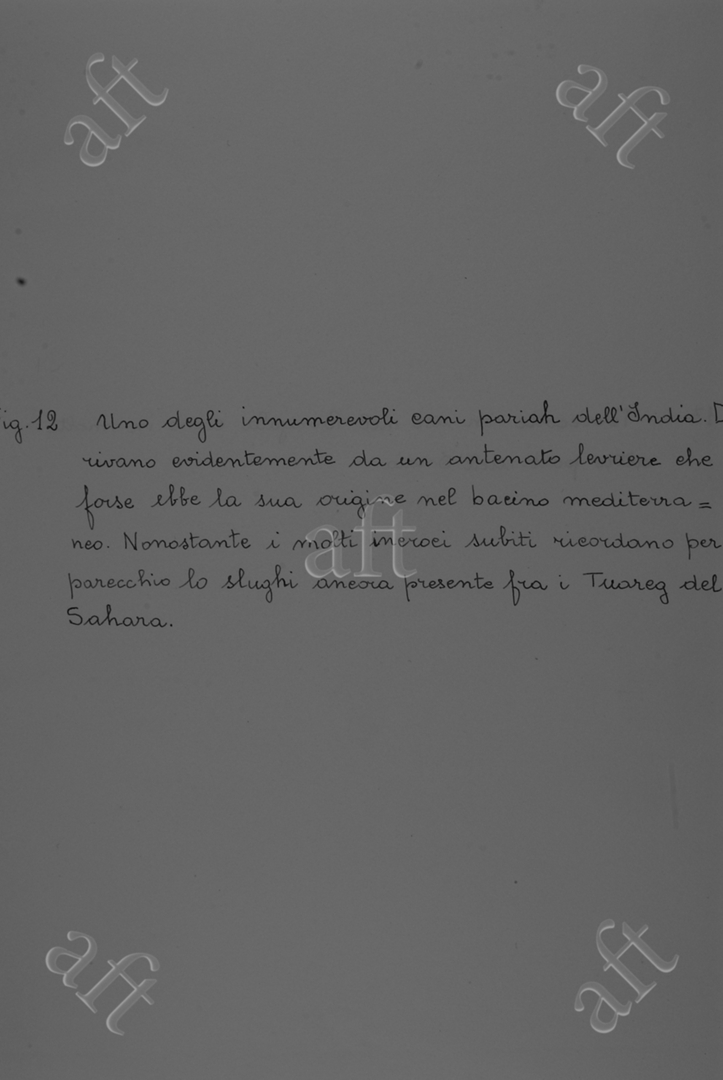 aft aft
ig.12 Uno degli innumerevoli cani pariah dell'India. D
rivano evidentemente da un antenato levriere che
forse ebbe la sua origine nel bacino mediterra=
neo. Nonostante i molti incroci subiti ricordano per
aft
parecchio lo slughi ancora presente fra i Tuareg del
Sahara.
aft aft